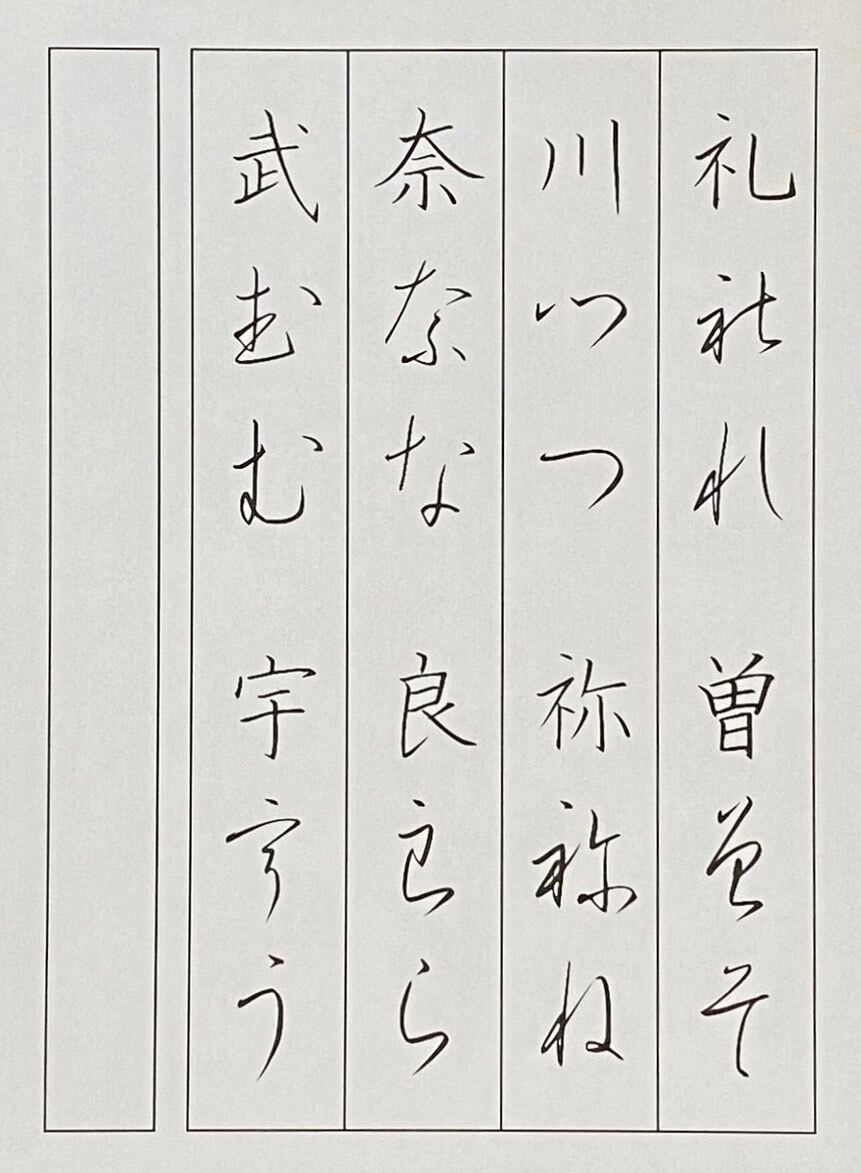 礼礼れ 曽曽そ
川川つ 祢祢ね
奈奈な 良良ら
武武む 宇宇う